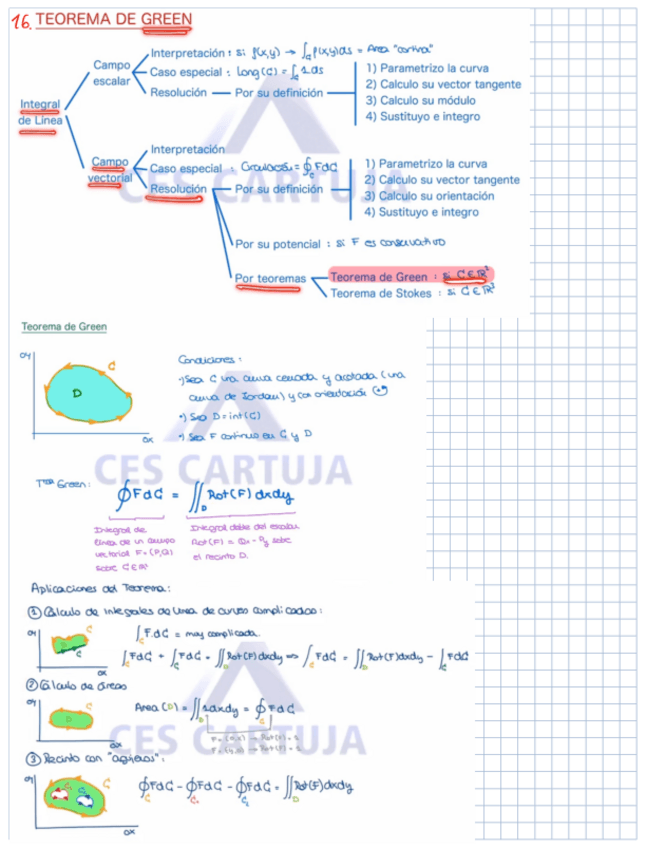 16. TEOREMA DE GREEN
Integral de Línea
Campo escalar
Interpretación : si f(x,y) → ∫_C f(x,y)ds = Área "cortina"
Caso especial : Long(C) = ∫_C 1 ds
Resolución — Por su definición
1) Parametrizo la curva
2) Calculo su vector tangente
3) Calculo su módulo
4) Sustituyo e integro
Campo vectorial
Interpretación
Caso especial : Circulación = ∮_C FdC
Resolución — Por su definición
1) Parametrizo la curva
2) Calculo su vector tangente
3) Calculo su orientación
4) Sustituyo e integro
Por su potencial : si F es conservativo
Por teoremas
Teorema de Green : si C ∈ ℝ²
Teorema de Stokes : si C ∈ ℝ³
CES CARTUJA
Teorema de Green
OY
C
D
OX
Condiciones :
•) Sea C una curva cerrada y acotada (una
curva de Jordan) y con orientación (+)
•) Sea D = int(C)
•) Sea F continuo en C y D
CES CARTUJA
Tma Green :
∮FdC = ∬_D Rot(F) dxdy
Integral de
línea de un campo
vectorial F=(P,Q)
sobre C∈ℝ²
Integral doble del escalar
Rot(F) = Qx - Py sobre
el recinto D.
Aplicaciones del Teorema :
① Cálculo de integrales de línea de curvas complicadas :
OY
C
OX
∫_C F.dC = muy complicada.
∫_C FdC + ∫_C FdC = ∬_D Rot(F)dxdy ⇒ ∫_C FdC = ∬_D Rot(F)dxdy - ∫_C FdC
② Cálculo de áreas
OY
C
D
OX
Área (D) = ∬_D 1dxdy = ∮_C FdC
F = (0,x) → Rot(F) = 1
CES CARTUJA
③ Recinto con "agujeros" :
OY
C
OX
∮_C FdC - ∮_C₁ FdC - ∮_C₂ FdC = ∬_D Rot(F)dxdy